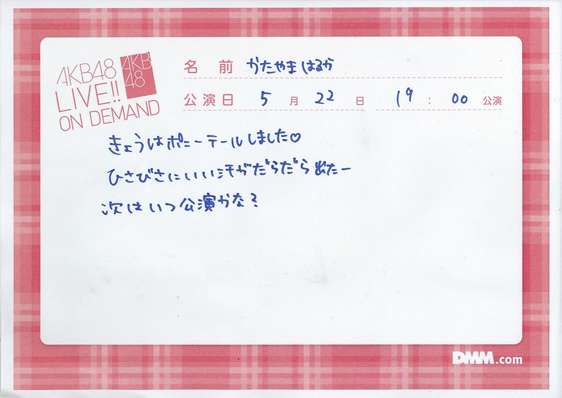 AKB48
LIVE!!
ON DEMAND
AKB
48
名前 かたやまはるか
公演日 5月22日 19:00公演
きょうはポニーテールしました♡
ひさびさにいい汗がだらだら出たー
次はいつ公演かな?
DMM.com